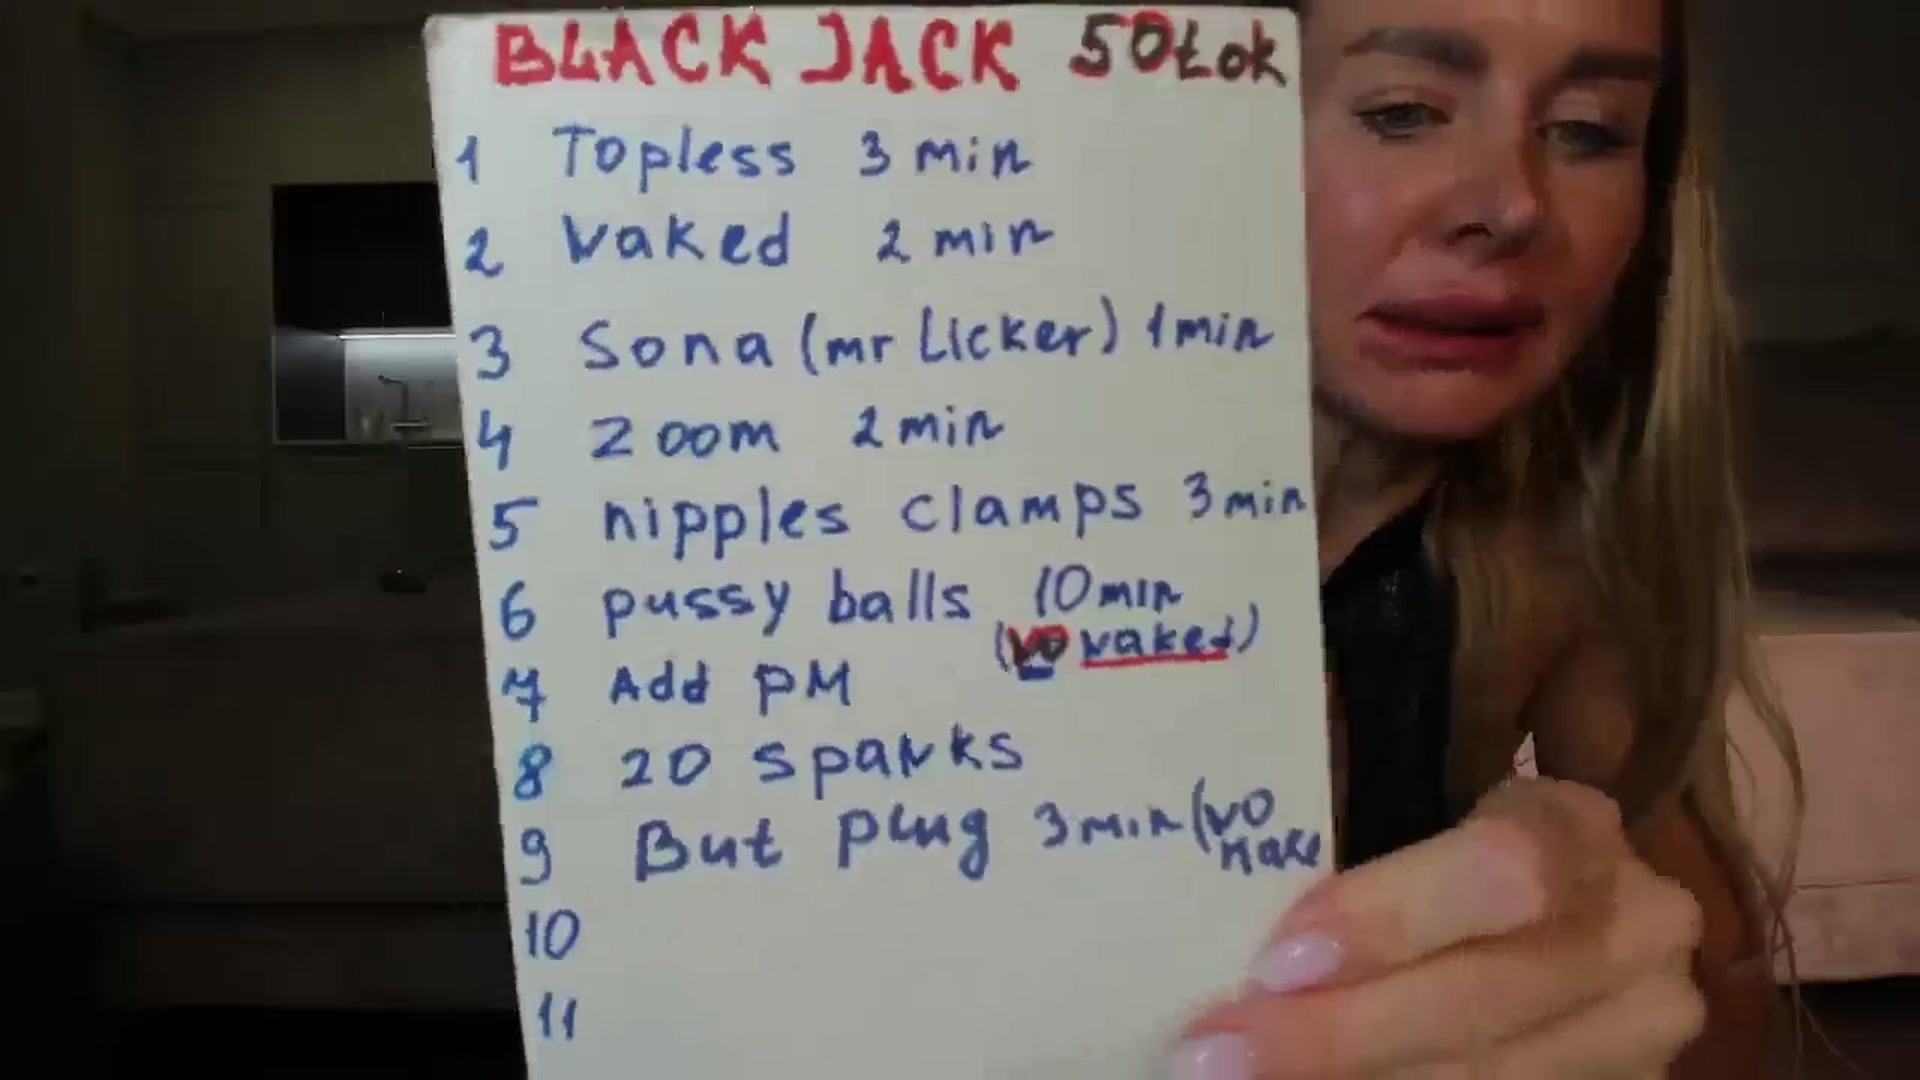 BLACK JACK 50tok
1 Topless 3 min
2 Naked 2 min
3 Sona (mr Licker) 1min
4 Zoom 2min
5 nipples clamps 3min
6 pussy balls 10min
(no naked)
7 Add PM
8 20 spanks
9 But plug 3min (no
nake
10
11